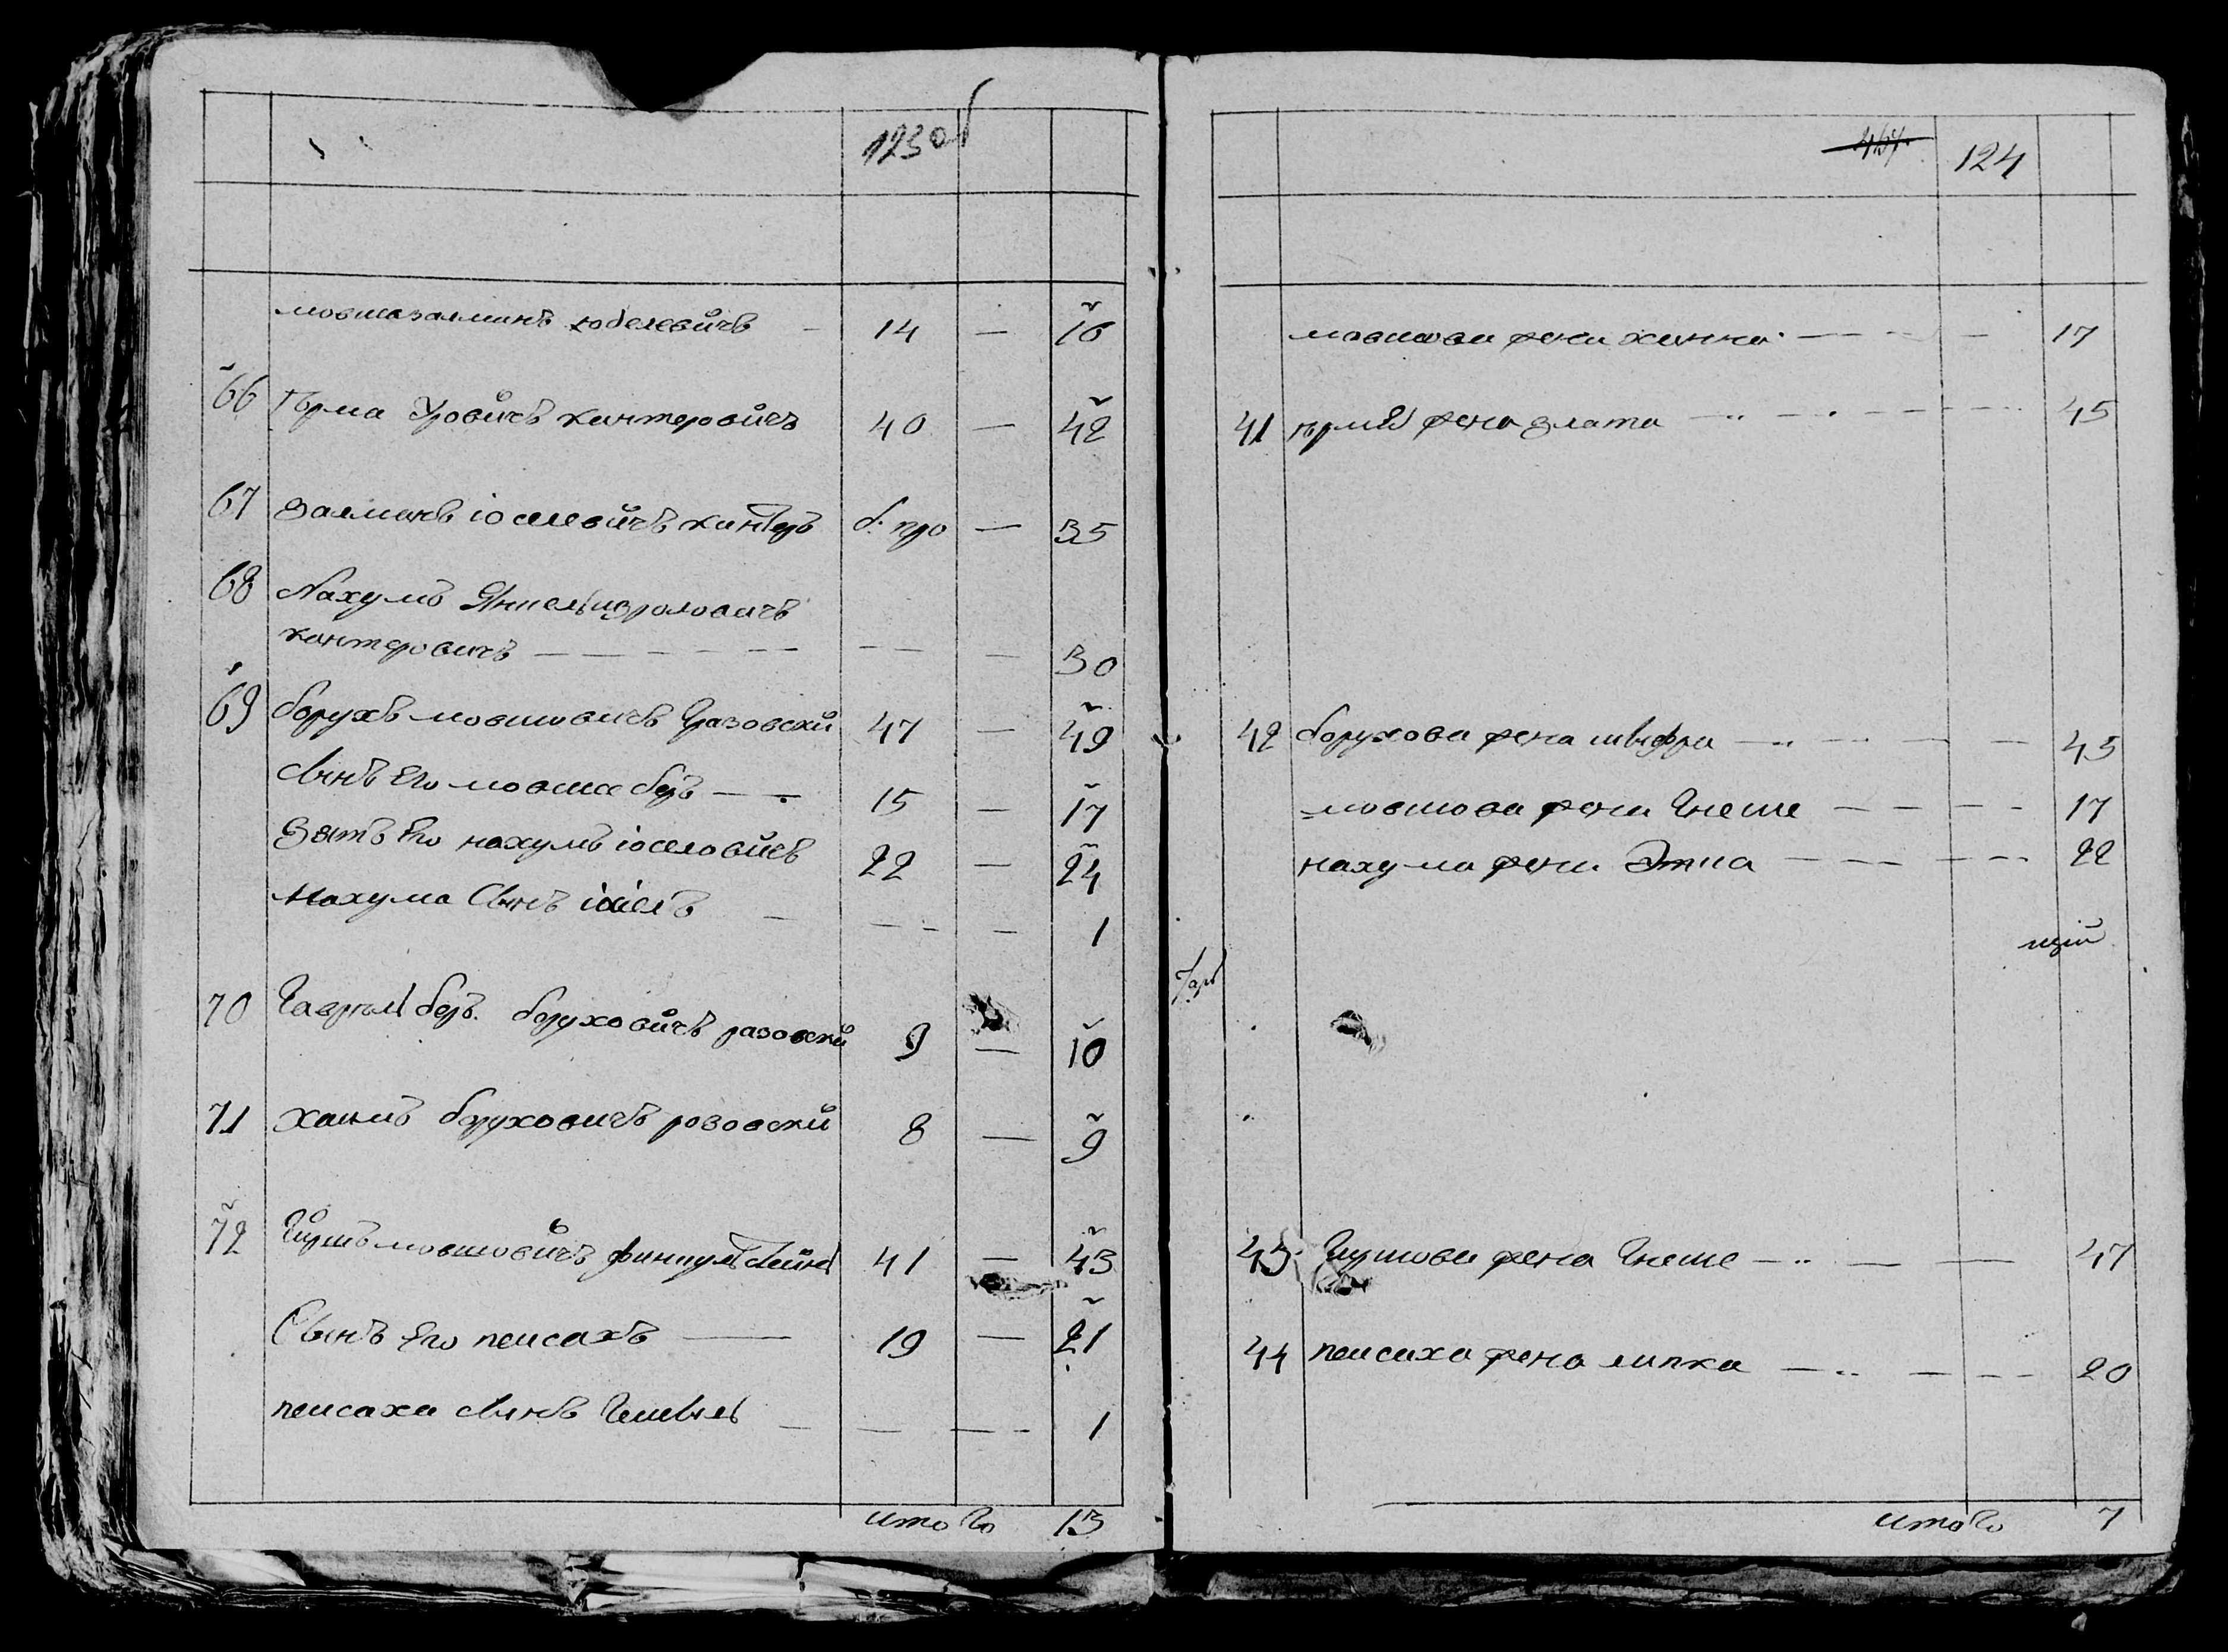 123 об
мовшазалманъ юделевичъ – 14 — 16
66 Ѣрма Уровичъ кантеровичъ 40 — 42
67 Залманъ іоселевичъ кантеръ б. про — 35
68 Нахумъ Янкель израловичъ
кантеровичъ — — — 30
69 борухъ мовшовичъ Гразовски 47 — 49
Сынъ Его мовша беръ — 15 — 17
Зять Его нахумъ іоселовичъ 22 — 24
Нахума Сынъ іхіелъ — — — 1
70 Гаврѣль беръ боруховичъ разовски 9 — 10
71 хаимъ боруховичъ розовски 8 — 9
72 мовшовичъ 41 — 43
Сынъ Его пейсахъ — 19 — 21
пейсаха сынъ — — — 1
итого 13
124
мовшова жена ханна — 17
41 жена злата — 45
42 борухова жена шифра — 45
мовшова жена Гнеше — 17
нахума жена Этка — 22
43 жена Гнеше — 47
44 пейсаха жена липка — 20
итого 7